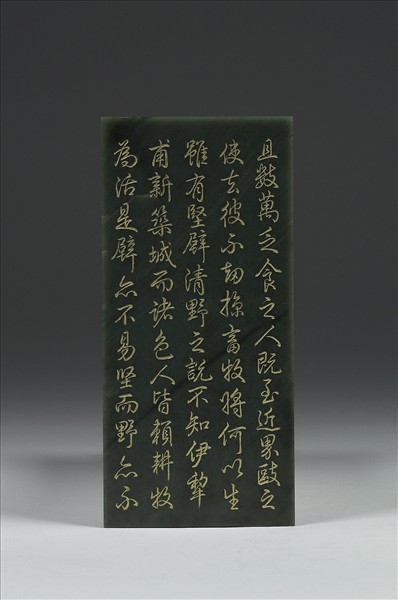 且數萬乏食之人既至近界敺之
使去彼不刼掠畜牧將何以生
雖有堅壁清野之說不知伊犂
甫新築城而諸色人皆賴耕牧
為活是壁亦不易堅而野亦不